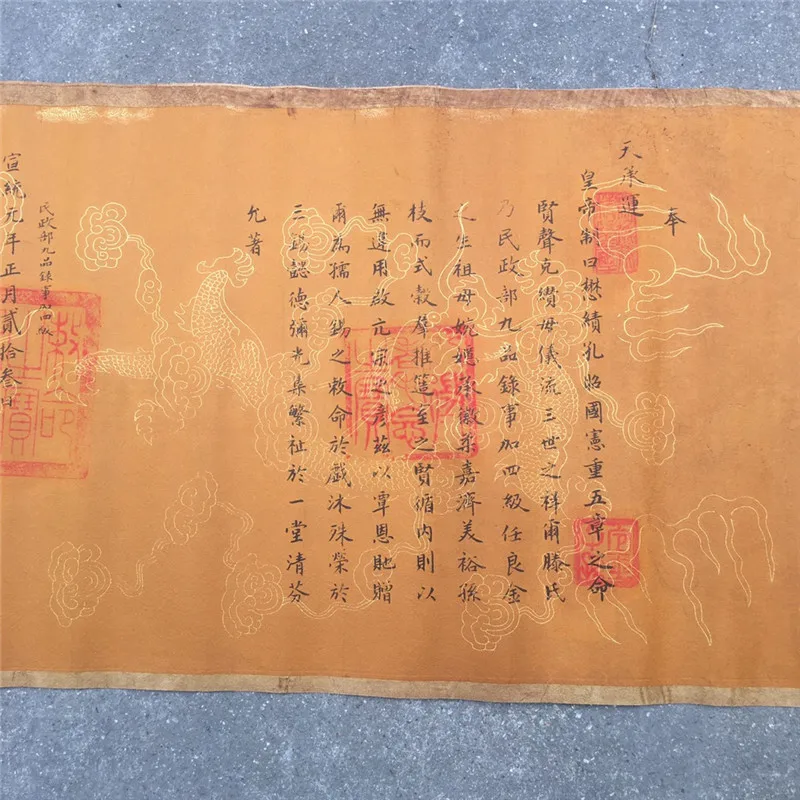 奉
天承運
皇帝制曰懋績孔昭國憲重五章之命
賢聲克纘母儀流三世之祥爾滕氏
乃民政部九品錄事加四級任良金
之生祖母婉嫕承徽柔嘉濟美裕孫
枝而式穀聿推篤至之賢循內則以
無違用啟亢宗之彥茲以覃恩貤贈
爾為孺人錫之敕命於戲沐殊榮於
三錫懿德彌光集繁祉於一堂清芬
允著
民政部九品錄事加四級
宣統元年正月貳拾叁日
敕命之寶